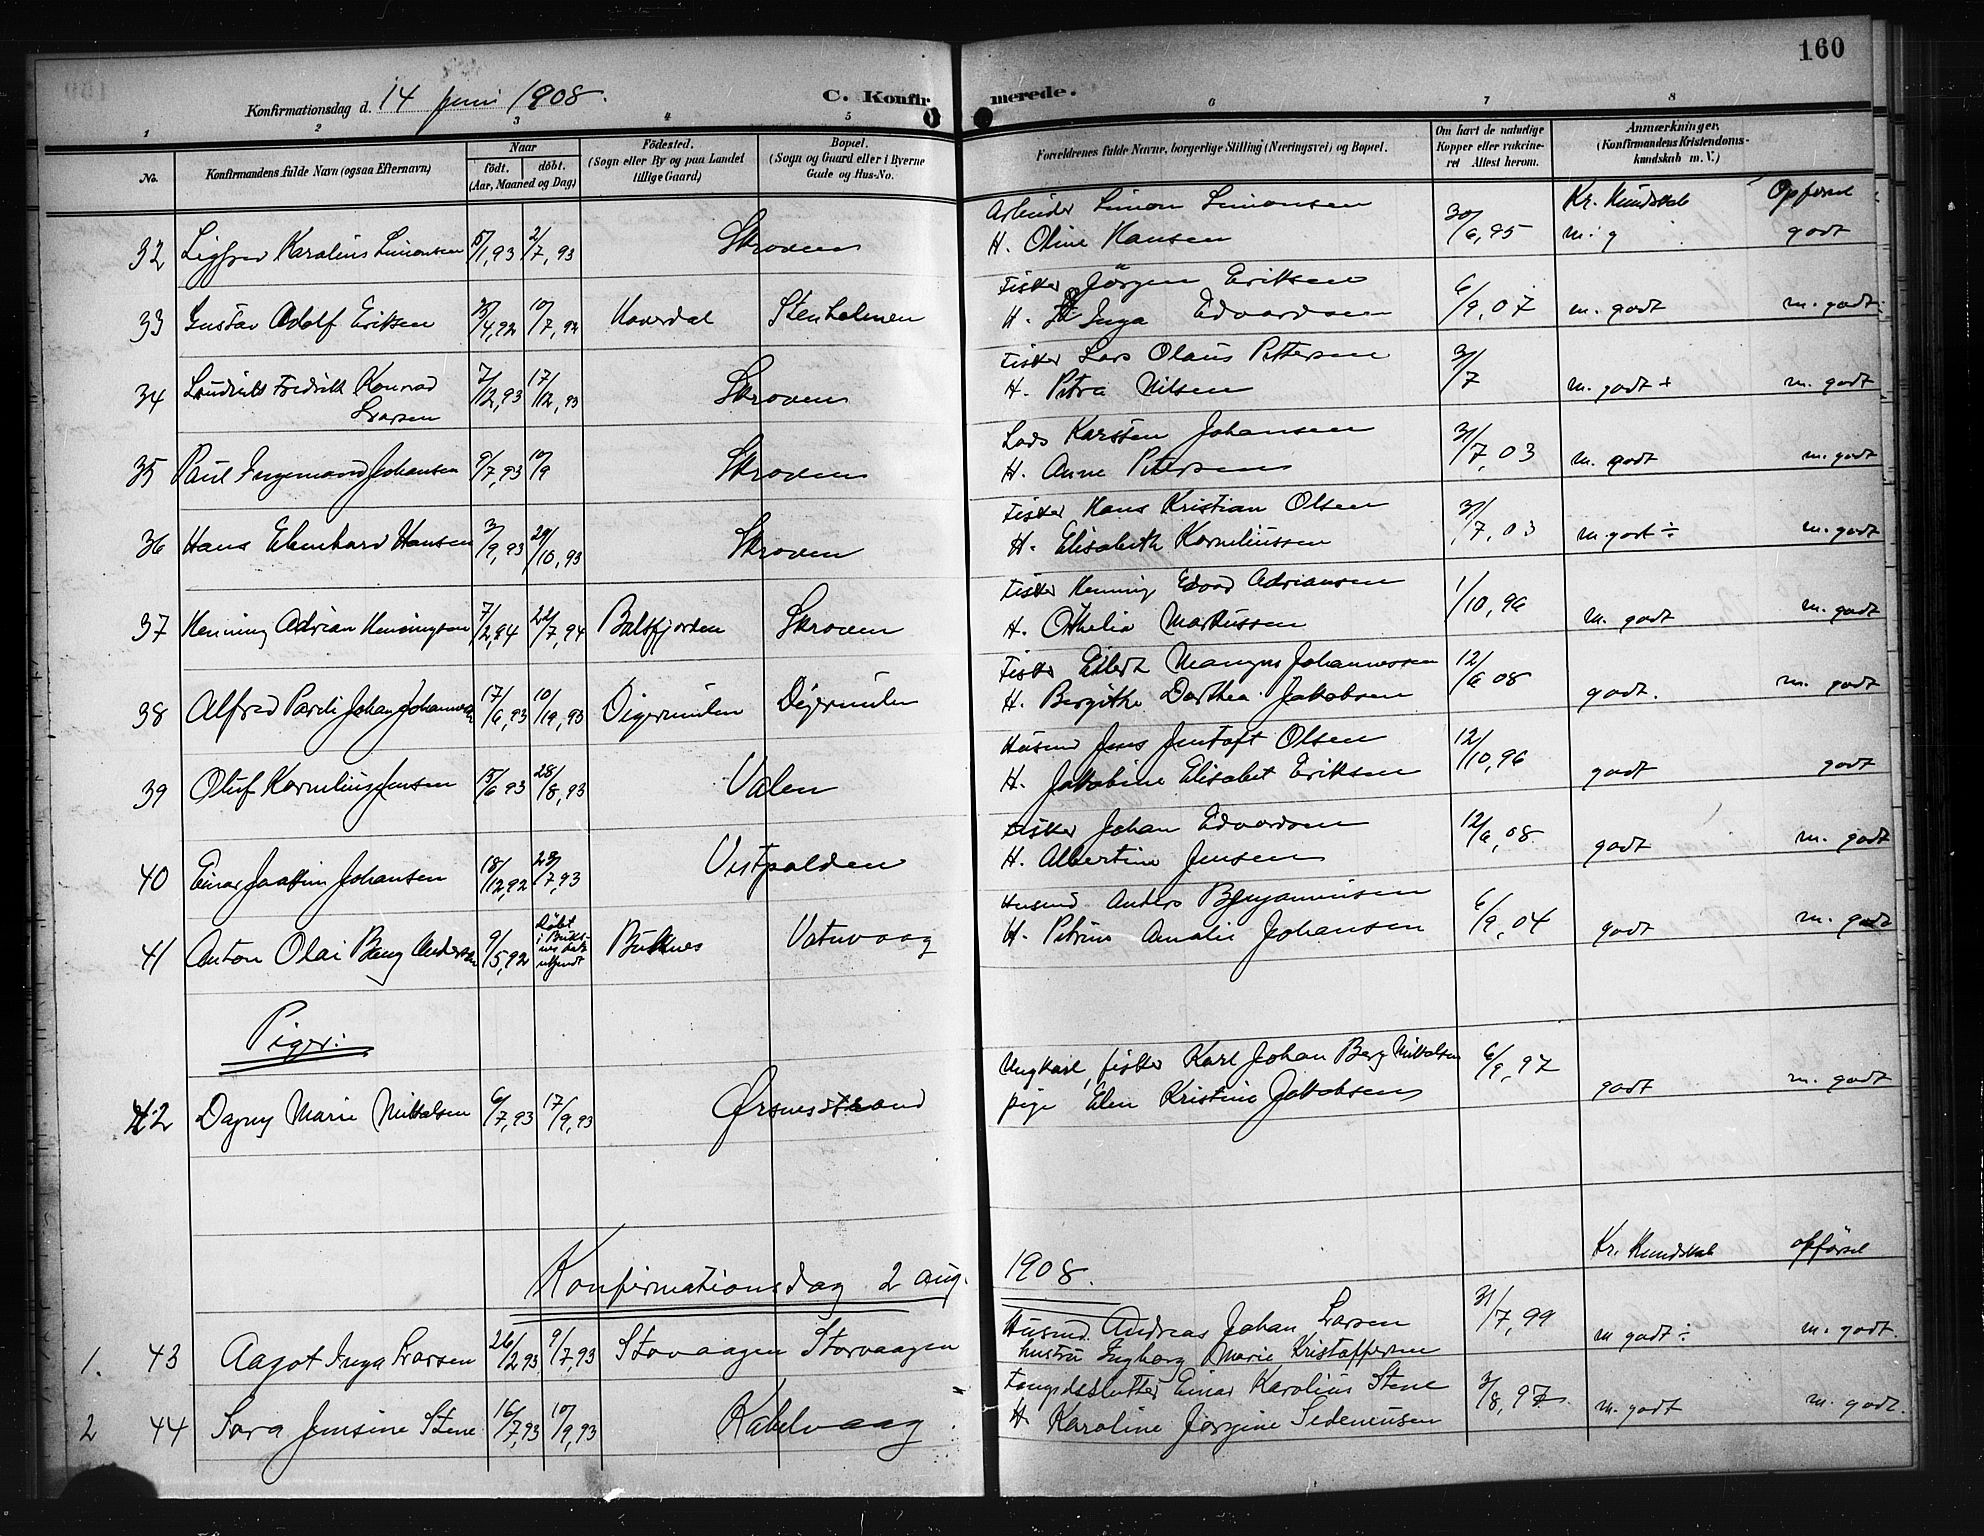 160
Konfirmationsdag d. 14 Juni 1908.
C. Konfirmerede.
1 2 3 4 5 6 7 8
No.
Konfirmandens fulde Navn (ogsaa Efternavn)
Naar
født. døbt.
(Aar, Maaned og Dag)
Fødested.
(Sogn eller By og paa Landet
tillige Gaard)
Bopæl.
(Sogn og Gaard eller i Byerne
Gade og Hus-No.
Forældrenes fulde Navne, borgerlige Stilling (Næringsvei) og Bopæl.
Om havt de naturlige
Kopper eller vakcine-
ret Attest herom.
Anmærkninger.
(Konfirmandens Kristendoms-
kundskab m. V.)
Kr. Kundskab Opførsel
Arbeider Simon Simonsen
32 Sigfred Karolius Simonsen 5/1, 93 2/7, 93 Skroven H. Oline Hansen 30/6, 95 m. g godt
Fisker Jørgen Eriksen
33 Gustav Adolf Eriksen 4, 92 10/7, 92 Haverdal Stenholmen H. Inga Edvardsen 6/9, 07 m. godt m. godt
Fisker Lars Olaus Pettersen
34 Fredrik Konrad 7/12, 93 17/12, 93 Skroven H. Petra Nilsen 31/7 m. godt + m. godt
Larsen
Lods Karsten Johansen
35 Paul Ingemand Johansen 9/7, 93 10/9 Skroven H. Anne Petersen 31/7, 03 m. godt m. godt
Fisker Hans Kristian Olsen
36 Hans Eberhard Hansen 3/9, 93 29/10, 93 Skroven H. Elisabeth Korneliussen 31/7, 03 m. godt ÷ m. godt
Fisker Henning Edvard Adriansen
37 Henning Adrian Henningsen 7/2, 94 22/7, 94 Balsfjorden Skroven H. Othelie Markussen 1/10, 96 m. godt m. godt
Fisker Edlert Mangus Johannessen
38 Alfred Pareli Johan Johannessen 17/6, 93 10/ , 93 Digermulen Digermulen H. Bergitte Dorthea Jakobsen 12/6 08 godt. m. godt
Husmd Jens Jentoft Olsen
39 Oluf Kornelius Jensen 5/6 93 28/8, 93 Valen H. Jakobine Elisabet Eriksen 12/10, 96 godt godt
Fisker Johan Edvardsen
40 Einar Joakim Johansen 18/12, 92 23/7, 93 Vestpolden H. Albertine Jensen 12/6, 08 godt m. godt
Husmd Anders Benjaminsen
41 Anton Olai Berg Andersen 9/5, 92 Døbt i Buks-nes Buksnes Vatnvaag H. Petrine Amalie Johansen 6/9, 04 godt m. godt
Piger:
Ungkarl, fisker Karl Johan Berg Mikkalsen
42 Dagny Marie Mikkalsen 6/7, 93 17/9, 93 Ørsnesstrand pige Elen Kristine Jakobsen 6/9, 97 godt m. godt
Kr. Kundskab opførsel
Konfirmationsdag 2 Aug. 1908.
Husmd. Andreas Johan Larsen
1. 43 Aagot Inga Larsen 26/2 93 9/7, 93 Storvaagen Storvaagen hustru Ingborg Marie Kristoffersen 31/7, 99 m godt ÷ m. godt.
Fangdslutter Einar Karolius Stene
2 44 Sara Jensine Stene 16/7, 93 10/9, 93 Kabelvaag H. Karoline Jørgine Sedeniusen 3/8, 97 m. godt m. godt.